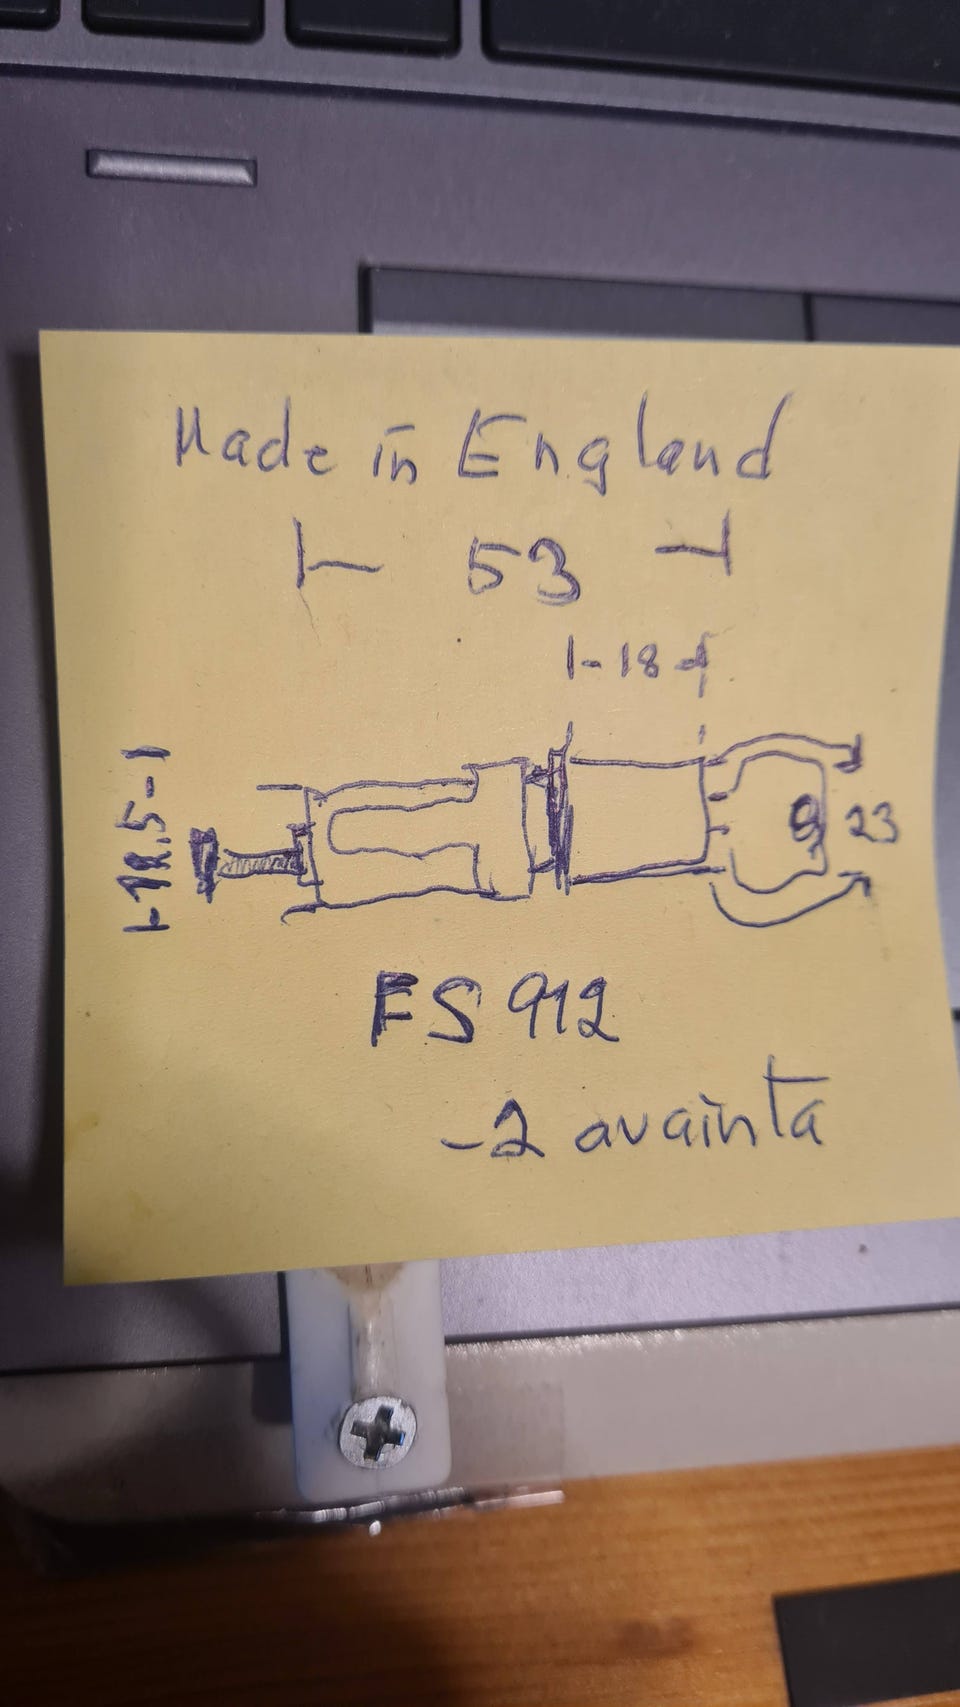 Made in England
53
18
18.5
9 23
FS 912
-2 avainta